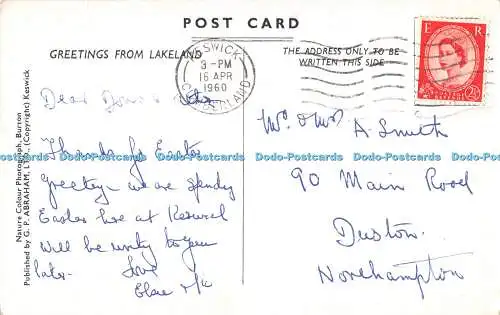 POST CARD
GREETINGS FROM LAKELAND
THE ADDRESS ONLY TO BE
WRITTEN THIS SIDE
KESWICK
3-PM
16 APR
1960
CUMBERLAND
E R
POSTAGE REVENUE
2½D
Dear Doris &
Thanks for Easter
Greetings we are spending
Easter here at Keswick
Will be writing to you
later. Love
Elsie
Mr. & Mrs A. Smith
90 Main Road
Duston.
Northampton
Nature Colour Photograph, Burton
Published by G. P. ABRAHAM, LTD., (Copyright) Keswick
Dodo-Postcards Dodo-Postcards Dodo-Postcards Dodo-Postcards Dodo-Postcards Dodo-Postcards